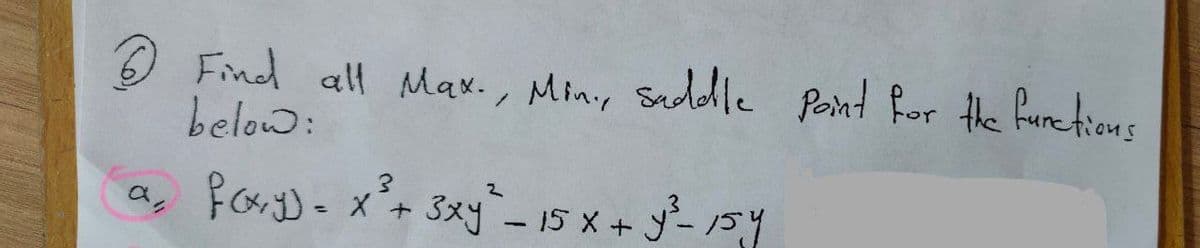 ⑥ Find all Max., Min., saddle Point for the functions
below:
a, f(x,y) = x³ + 3xy² - 15 x + y³ - 15y